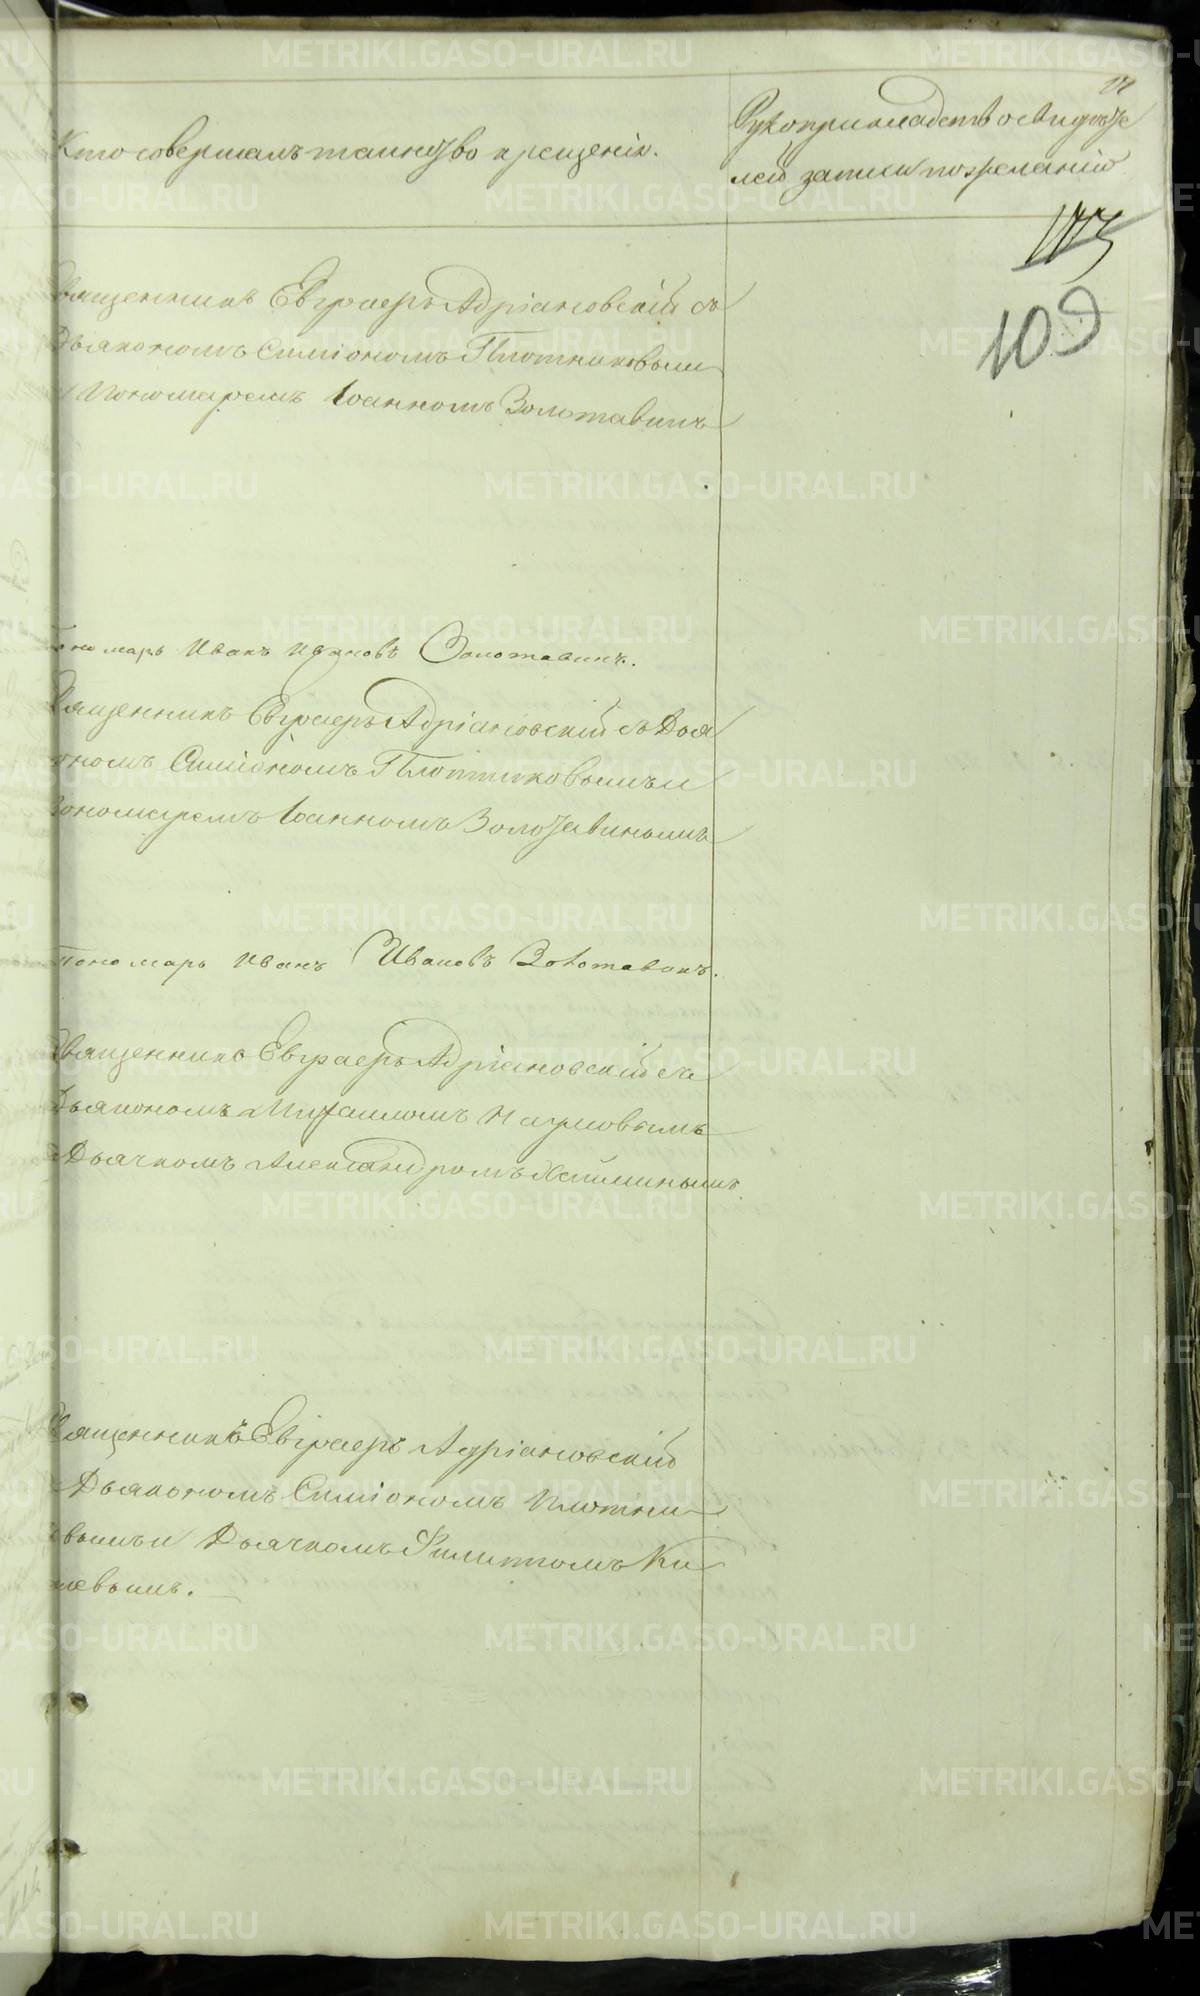 Кто совершалъ таинство крещенія.
Рукоприкладство свидѣте
лей записи по желанію
103
109
Священникъ Евграфъ Адріановскій съ
Дьякономъ Симіономъ Плотниковым
и Пономаремъ Іоанномъ Золотавинъ
Пономарь Иванъ Ивановъ Золотавинъ.
Священникъ Евграфъ Адріановскій съ Дья
кономъ Симіономъ Плотниковымъ и
Пономаремъ Іоанномъ Золотавинымъ
Пономарь Иванъ Ивановъ Золотавинъ.
Священникъ Евграфъ Адріановскій съ
Дьякономъ Михаиломъ Наумовымъ
Дьячкомъ Александромъ
Священникъ Евграфъ Адріановскій
Дьякономъ Симіономъ Плотни
ковымъ и Дьячкомъ Филиппомъ Ки
левымъ.
METRIKI.GASO-URAL.RU